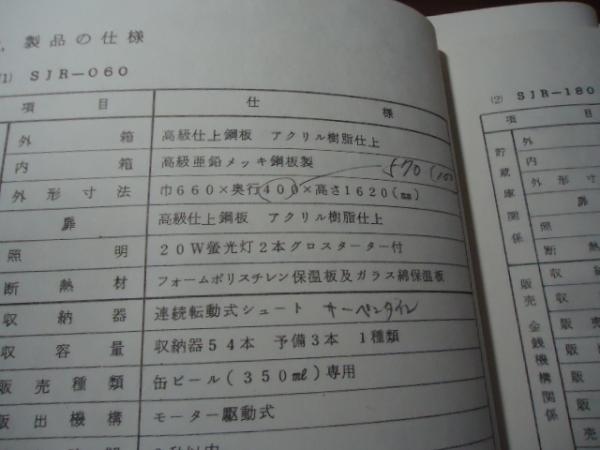 製品の仕様
(1) SJR－060
項目 仕様
外箱 高級仕上鋼板 アクリル樹脂仕上
内箱 高級亜鉛メッキ鋼板製
570 (100)
外形寸法 巾660×奥行400×高さ1620(㎜)
扉 高級仕上鋼板 アクリル樹脂仕上
照明 20W螢光灯2本グロスターター付
断熱材 フォームポリスチレン保温板及ガラス綿保温板
収納器 連続転動式シュート サーペンタイン
収容量 収納器54本 予備3本 1種類
販売種類 缶ビール(350㎖)専用
販出機構 モーター駆動式
(2) SJR－180
項目
貯蔵庫関係
外
内
外形寸
扉
照
断
収
販売金銭機構関係
収
販
販